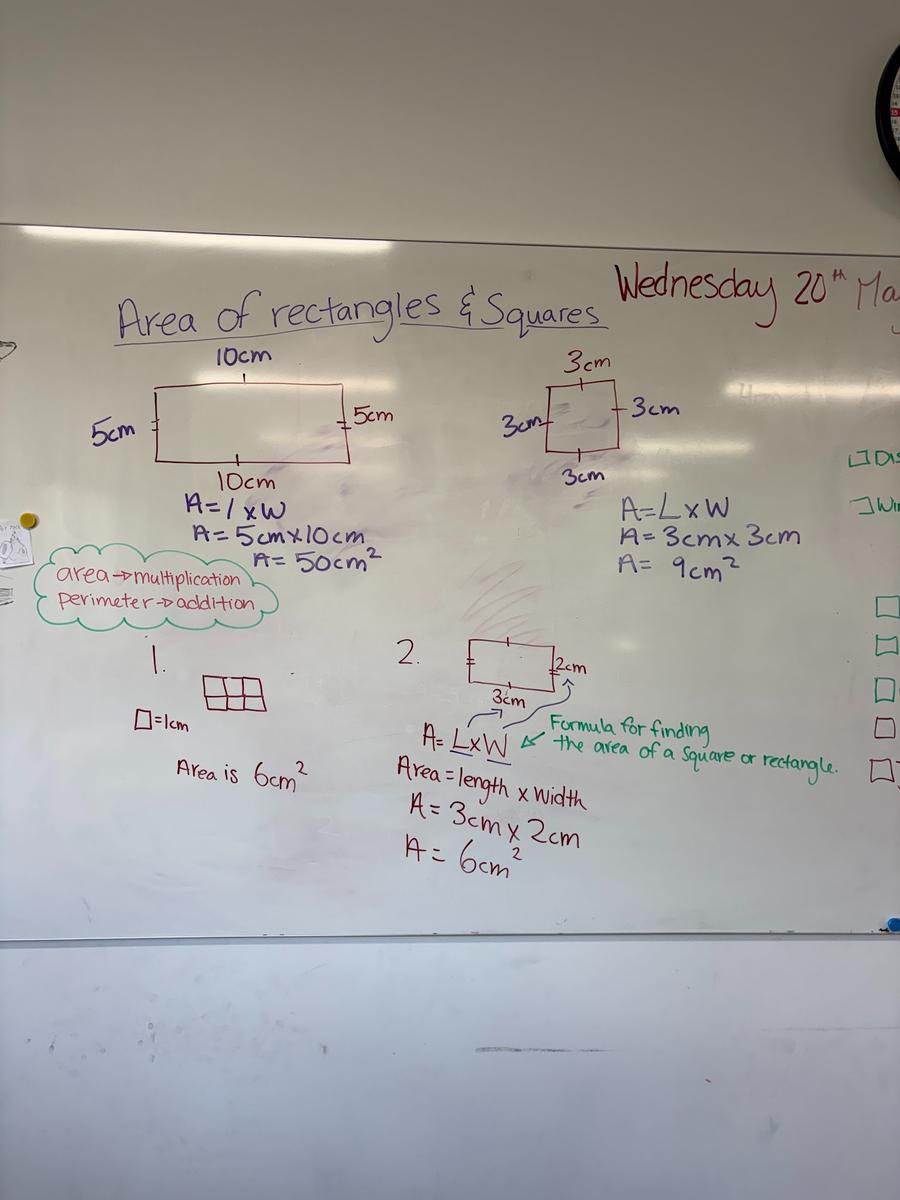 Area of rectangles & Squares
Wednesday 20th
10cm
5cm
5cm
10cm
A=l×W
A=5cm×10cm
A=50cm²
3cm
3cm
3cm
3cm
A=L×W
A=3cm×3cm
A= 9cm²
area→multiplication
perimeter→addition
1.
□=1cm
Area is 6cm²
2.
2cm
3cm
A= L×W
Formula for finding
the area of a square or rectangle.
Area=length × width
A= 3cm × 2cm
A= 6cm²